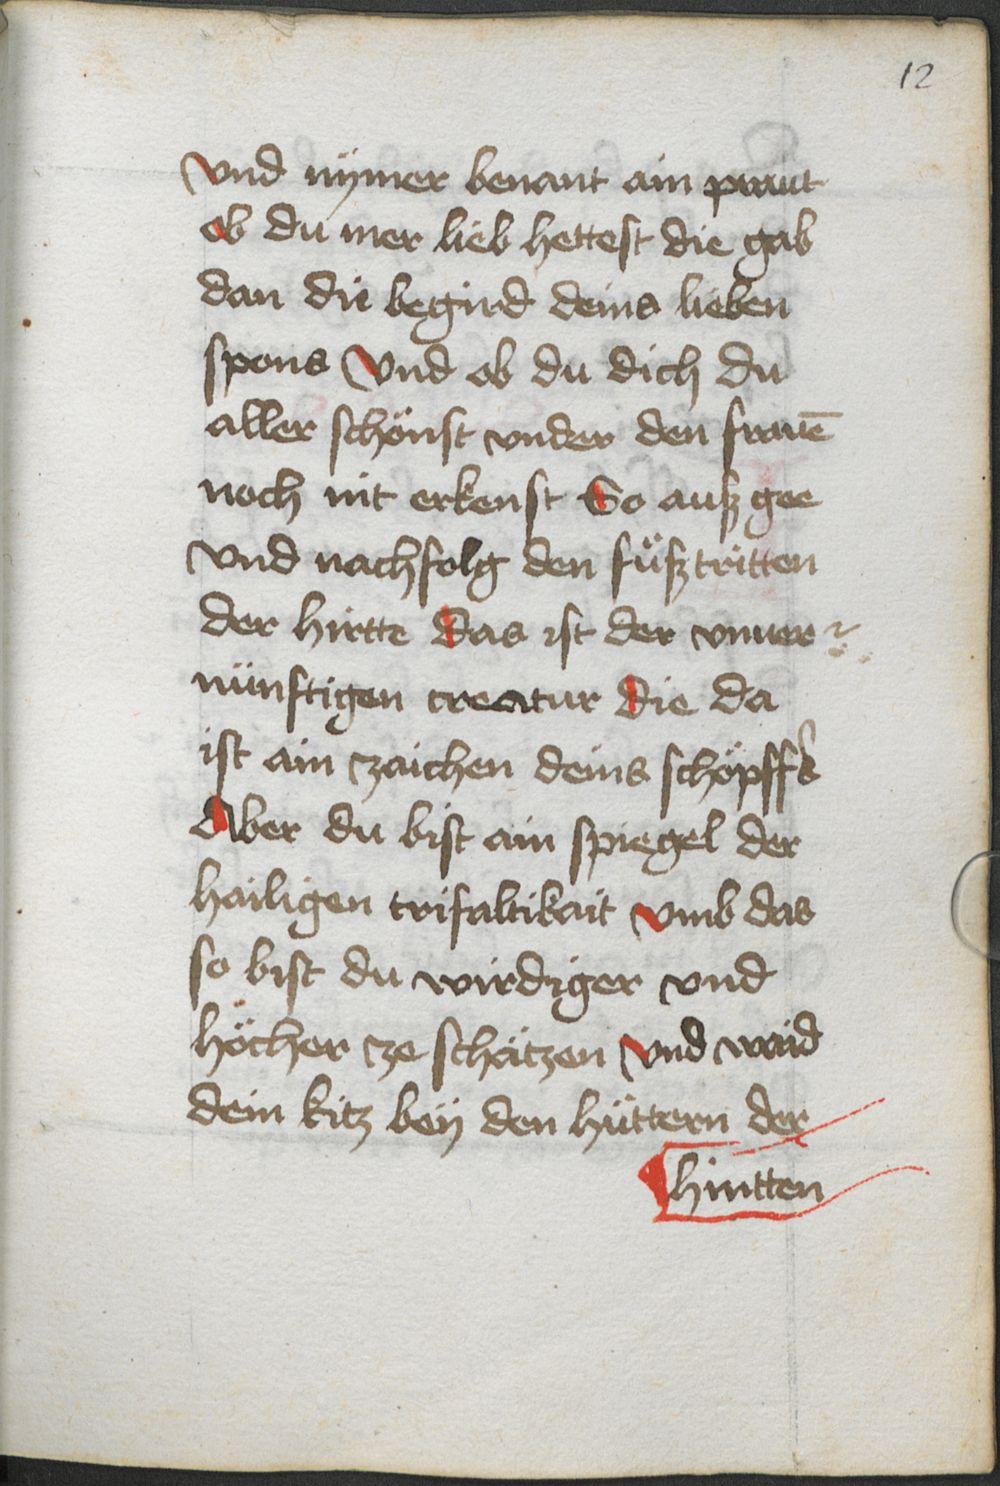 12
vnd nÿmer benant ain praut
ob du mer lieb hettest die gab
dan die begird deins lieben
spons Vnd ob du dich du
aller schönst vnder den frauē
noch nit erkenst So ausz gee
vnd nachfolg den füsztritten
der hirtte Das ist der vnuer
nünftigen creatur Die da
ist ain zaichen deins schöpffs
Aber du bist ain spiegel der
hailigen trifaltikait vmb das
so bist du wirdiger vnd
höcher ze schätzen vnd waid
dein kitz beÿ den hüttern der
hirtten